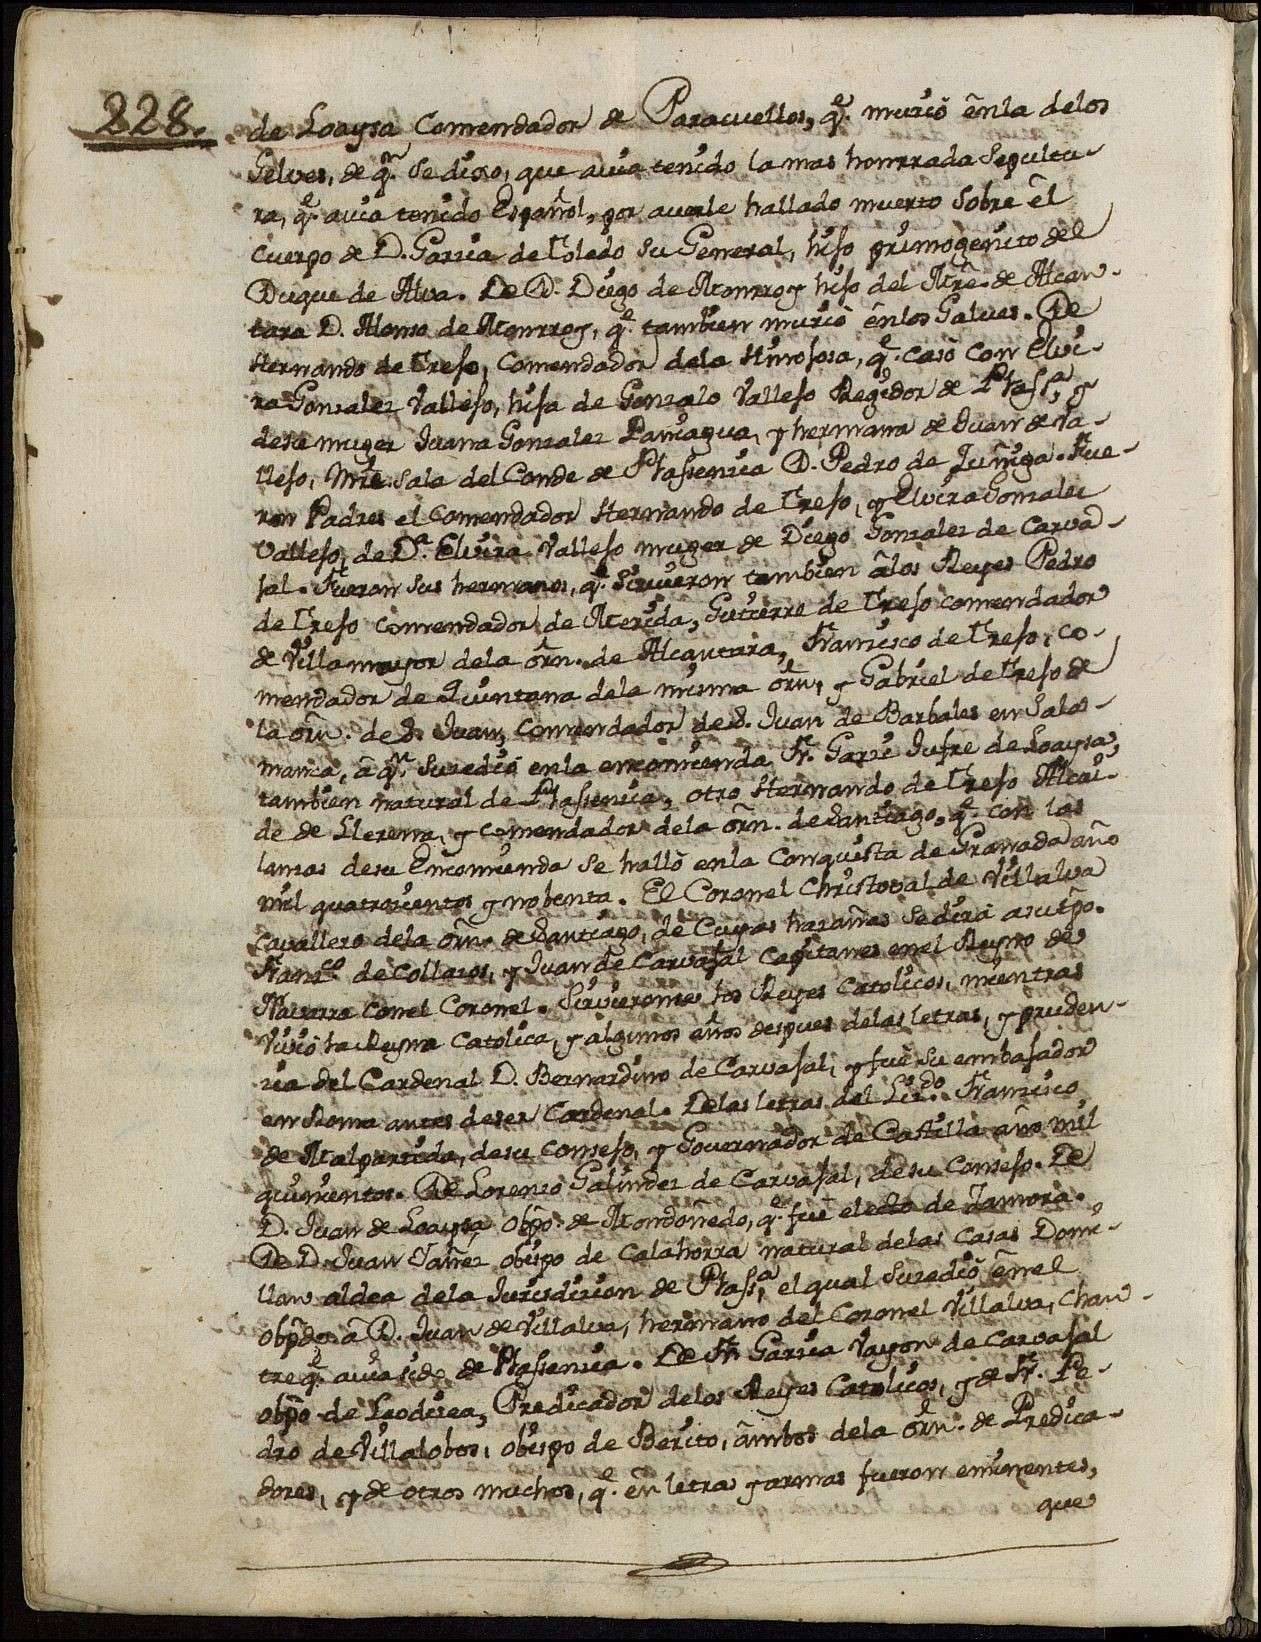 228.
de Loaysa Comendador de Paracuellos, q.e murió ẽnla delos
Gelves, de q.n se dixo, que avia tenido la mas honrrada Sepultu-
ra, q.e avia tenido Español, por averle hallado muerto Sobre el
cuerpo de D. Garcia de Toledo su General, hijo primogenito del
Duque de Alva. De D. Diego de Monrroy hijo del Mr̃e. de Alcan-
tara D. Alonso de Monrroy, q.e tambien murió ẽnlos Galves. De
Hernando de Trejo, Comendador dela Hinojosa, q.e casó con Elvi-
ra Gonzalez Vallejo, hija de Gonzalo Vallejo Regidor de Plas.a, y
desu muger Juana Gonzalez Paniagua, y hermana de Juan de Va-
llejo, Mr̃e. Sala del Conde de Plasencia D. Pedro de Zuñiga. Fue-
ron Padres el Comendador Hernando de Trejo, y Elvira Gonzalez
Vallejo, de D.a Elvira Vallejo muger de Diego Gonzalez de Carva-
jal. Fueron sus hermanos, q.e Sirvieron tambien ãlos Reyes Pedro
de Trejo Comendador de Merida, Gutierre de Trejo comendador
de Villamayor dela or̃n. de Alcantara, Francisco de Trejo, co-
mendador de Quintana dela misma or̃n, y Gabriel de Trejo de
la or̃n. de S. Juan, Comendador de S. Juan de Barbales en Sala-
manca, à q.n Suzedió enla encomienda Fr. Garci Jufre de Loaysa,
tambien natural de Plasencia, otro Hernando de Trejo Alcai-
de de Llerena, y comendador dela or̃n. de Santiago, q.e con las
lanzas desu Encomienda se halló enla Conquista de Granada año
mil quatrozientos y nobenta. El Coronel Christoval de Villalva
cavallero dela or̃n. de Santiago, de Cuyas hazañas se dirá asutp̃o.
Fran.co de Collazos, y Juan de Carvajal Capitanes enel Reyno de
Navarra conel Coronel. Sirvieronse los Reyes Catolicos, mientras
Vivió la Reyna Catolica, y algunos años despues delas letras, y pruden-
cia del Cardenal D. Bernardino de Carvajal, y fue su embajador
en Roma antes deser Cardenal. Delas letras del Liz.do Francisco
de Malpartida, desu consejo, y Governador de Castilla año mil
quinientos. De Lorenzo Galindez de Carvajal, desu Consejo. De
D. Juan de Loaysa Obp̃o. de Mondoñedo, q.e fue electo de Zamora.
De D. Juan Yañez obispo de Calahorra natural delas Casas Domi-
llan aldea dela Jurisdicion de Plas.a, el qual Suzedió ẽnel
obp̃do. à D. Juan de Villalva, hermano del Coronel Villalva, Chan-
tre q.e avia sido de Plasencia. De Fr. Garcia Vayon de Carvajal
obp̃o de Laodicea, Predicador delos Reyes Catolicos, y de Fr. Pe-
dro de Villalobos, obispo de Berito, ãmbos dela or̃n. de Predica-
dores, y de otros muchos, q.e en letras y armas fueron eminentes,
que